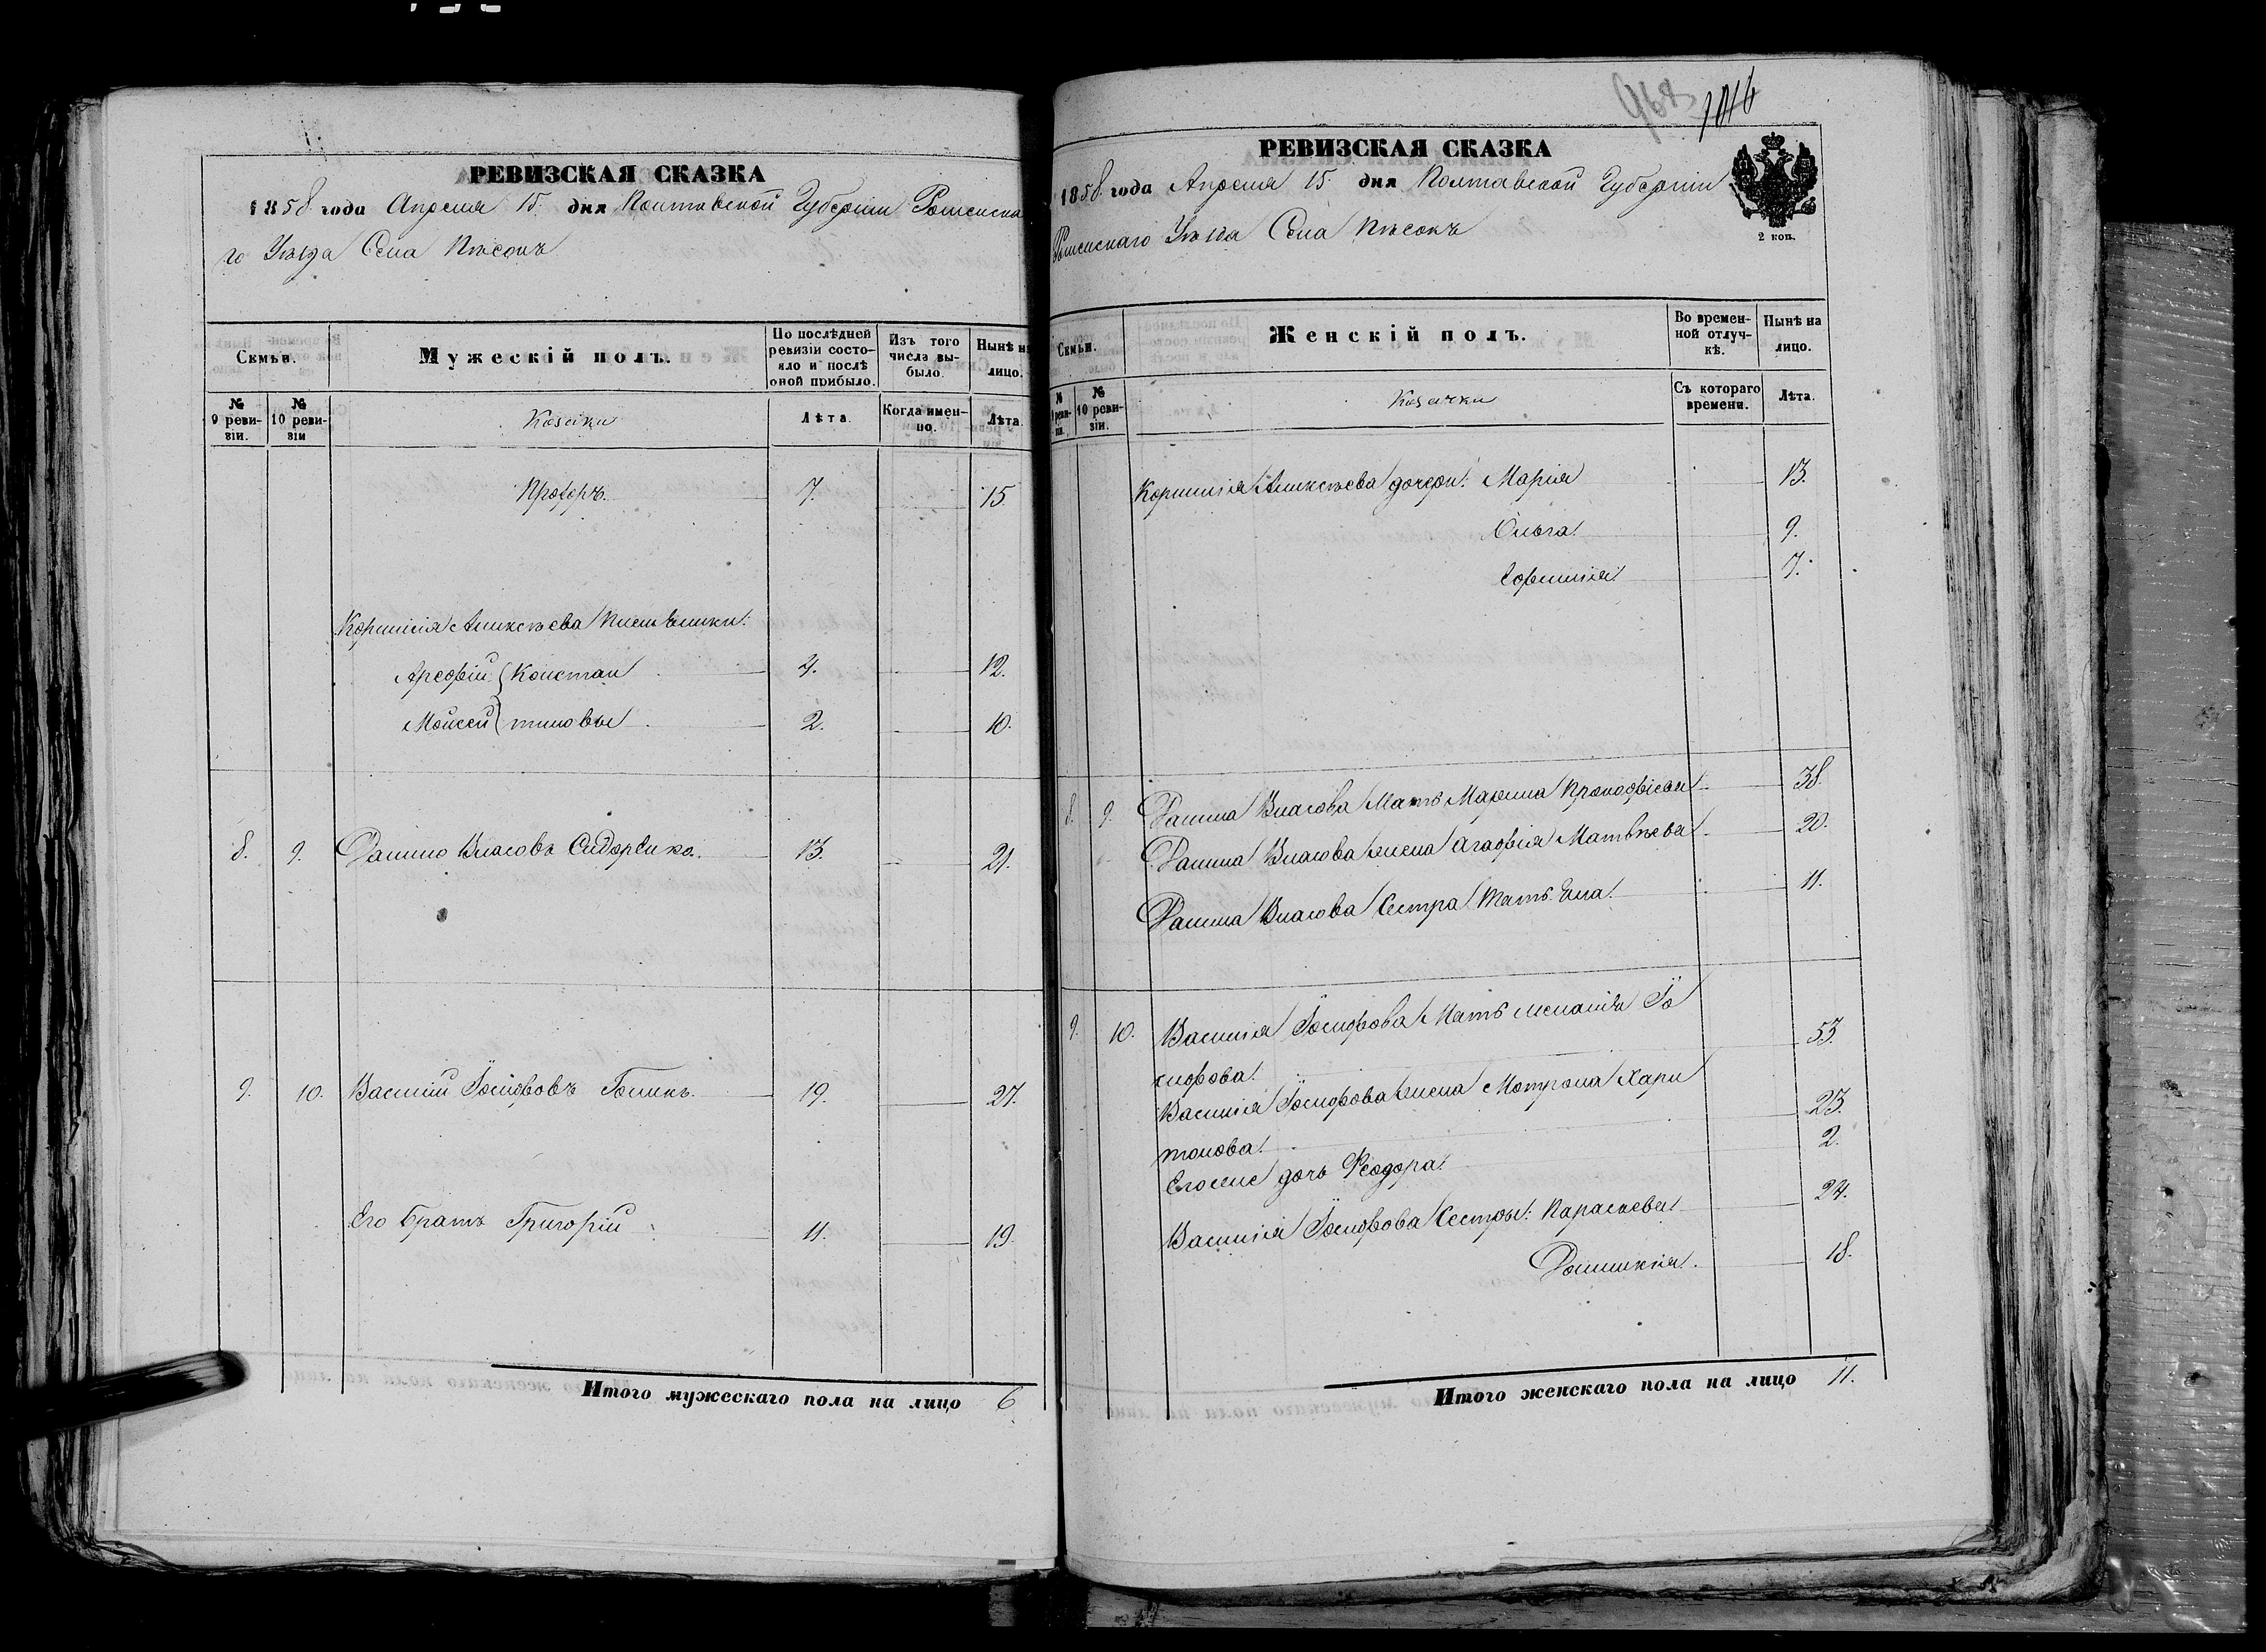 РЕВИЗСКАЯ СКАЗКА
1858 года Апреля 15 дня Полтавской Губерніи Роменска
го Уѣзда Села Пѣсокъ
Семьи.
Мужескій полъ.
По послѣдней ревизіи состояло и послѣ оной прибыло.
Изъ того числа выбыло.
Нынѣ на лицо.
№ 9 ревизіи.
№ 10 ревизіи
Козаки
Лѣта.
Когда именно.
Лѣта.
Прохоръ. 7. 15.
Корнилія Алексѣева Племѣники:
Арефій Констан 4. 12.
Мойсей тиновы 2. 10.
8. 9. Данило Власовъ Сидоренко. 13. 21.
9. 10. Василій Іосифовъ Голикъ. 19. 27.
Его братъ Григорій 11. 19.
Итого мужескаго пола на лицо 6
968 1016
РЕВИЗСКАЯ СКАЗКА
1858 года Апреля 15 дня Полтавской Губерніи
Роменскаго Уѣзда Села Пѣсокъ
2 коп.
Семьи.
Женскій полъ.
Во временной отлучкѣ.
Нынѣ на лицо.
№ 9 ревизіи.
№ 10 ревизіи.
Козачки
Съ котораго времени.
Лѣта.
Корнилія Алексѣева дочери: Марія 13.
Ольга. 9.
Ефимія. 7.
8. 9. Данила Власова Мать Марина Прокофіева 38.
Данила Власова жена Агафія Матвѣева 20.
Данила Власова Сестра Татьяна. 11.
9. 10. Василія Іосифова Мать Меланія Іо
сифова. 53.
Василія Іосифова жена Мотрона Хари
тонова. 23.
Еголис дочь Феодора. 2.
Василія Іосифова Сестры: Параскева 24.
Домникія. 18.
Итого женскаго пола на лицо 11.